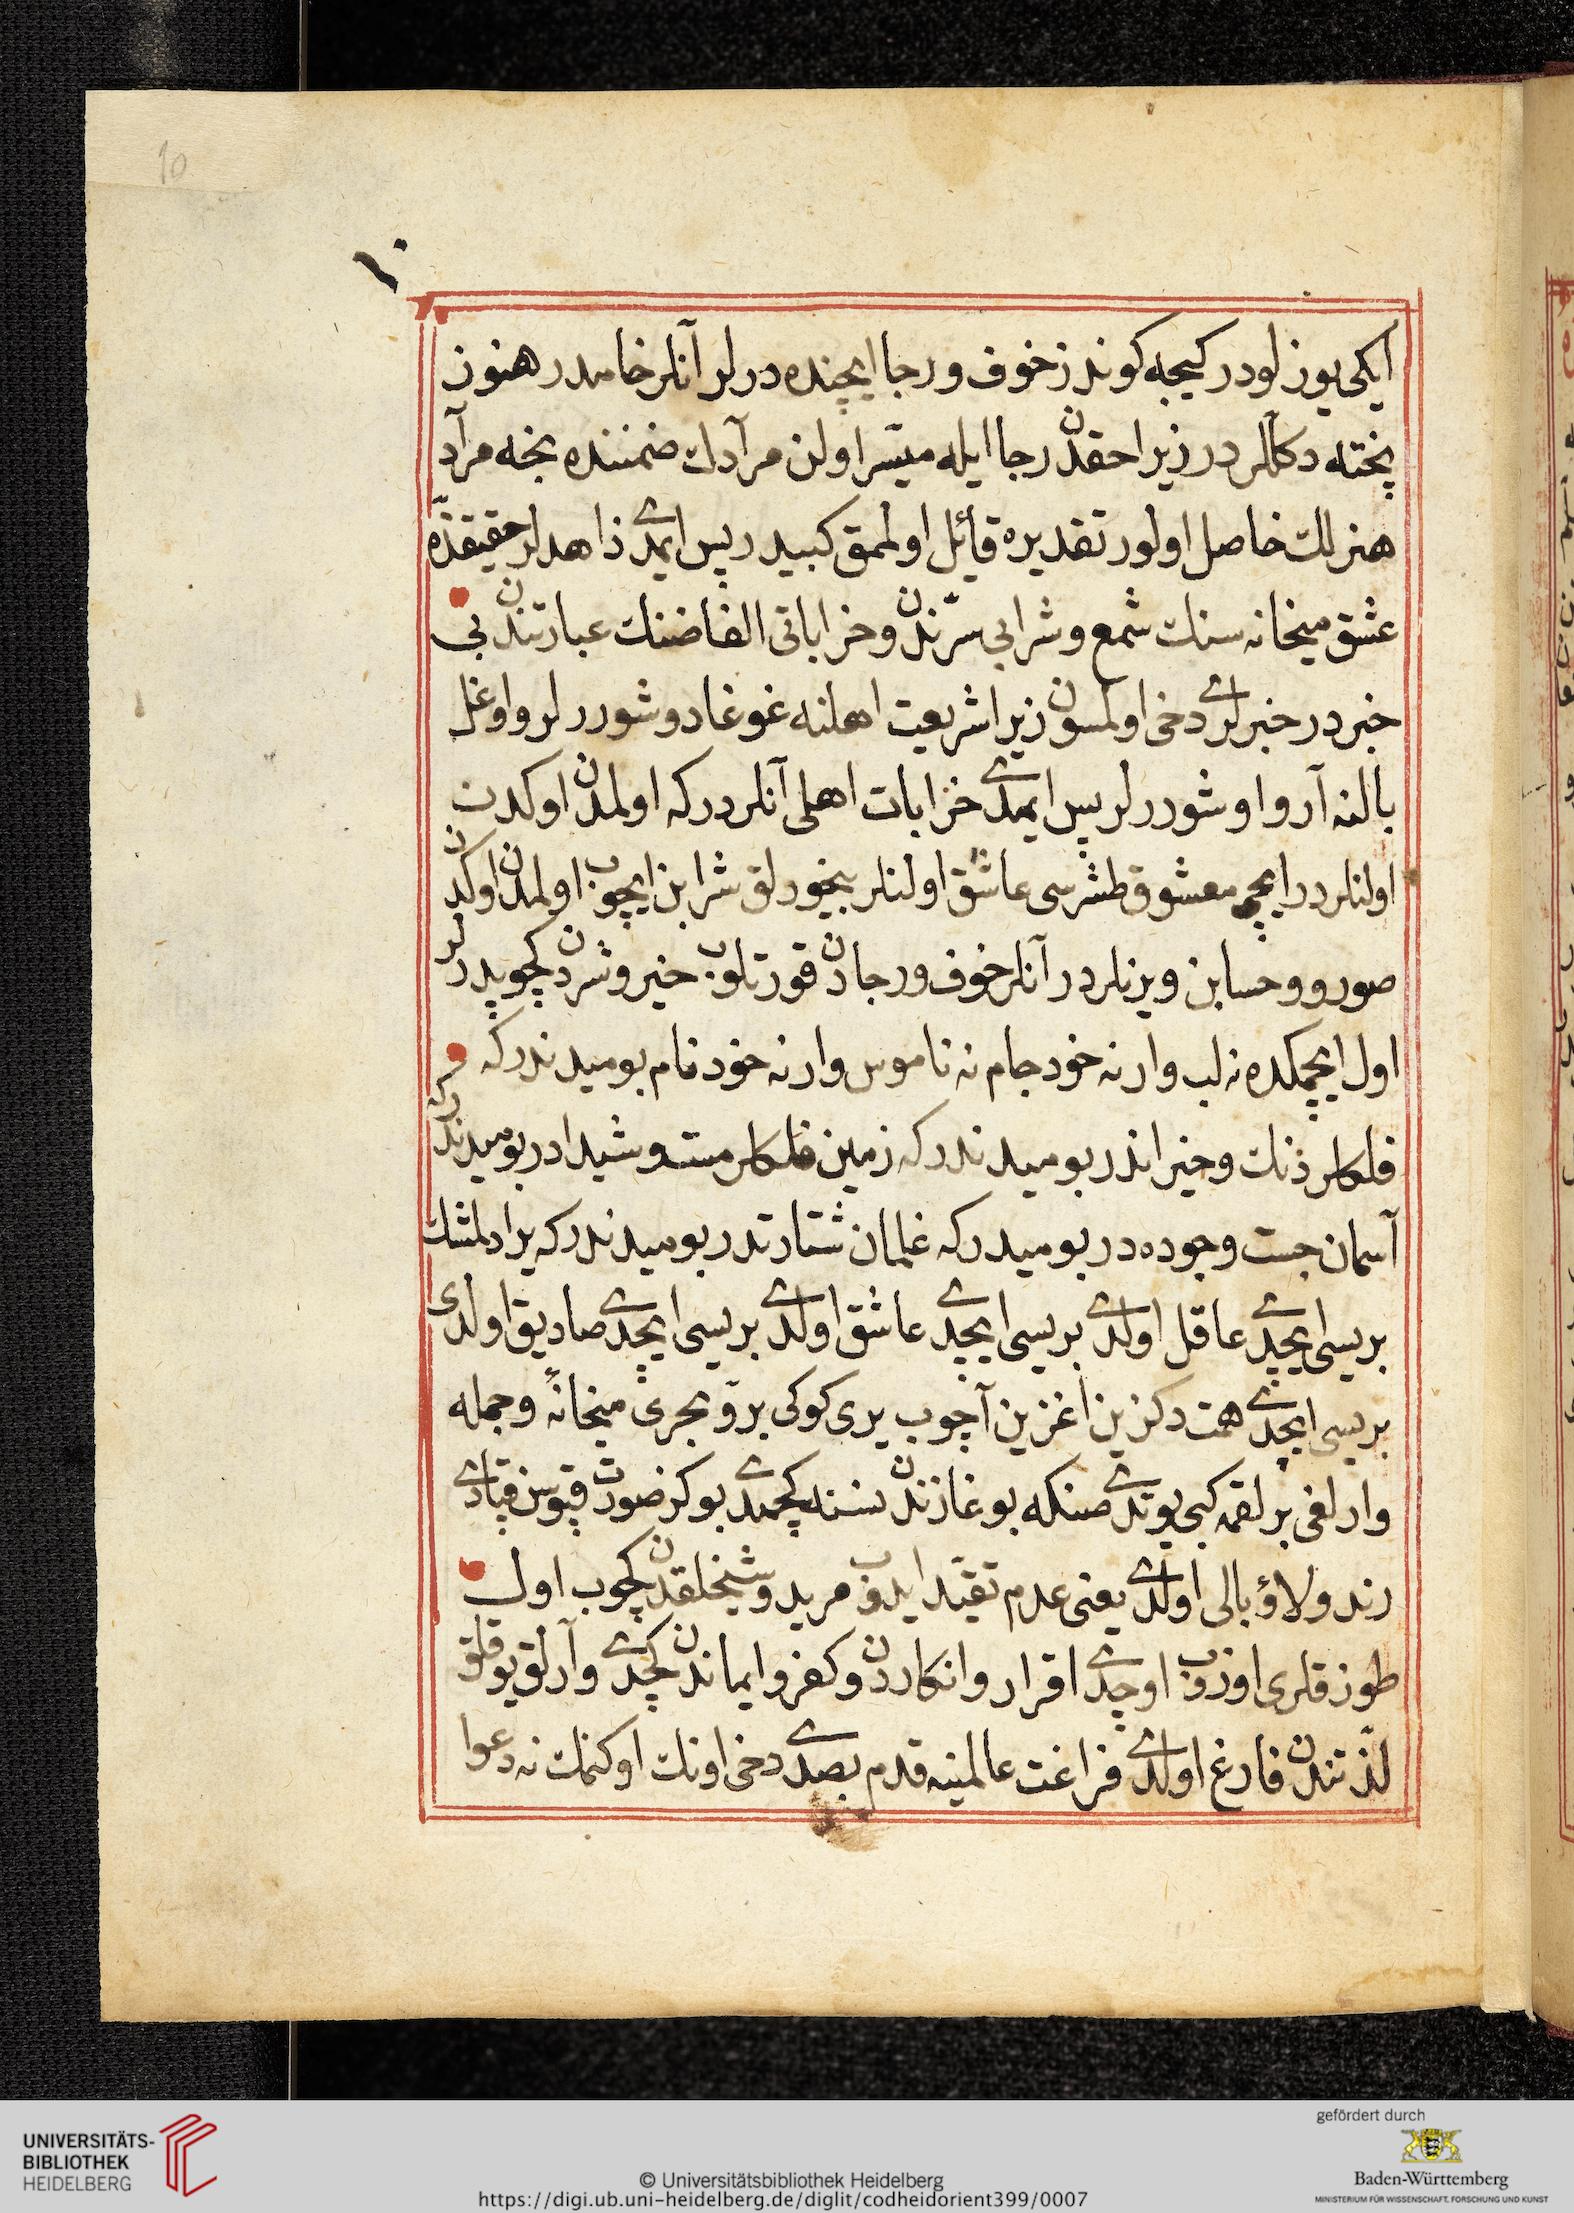 10
١٠
ایکی یوزلودر کیجه کوندز خوف و رجا ایچنده درلر آنلر خامدر هنوز
پخته دکللردر زیرا حقدن رجا ایله میسّر اولن مرآدك ضمننده بخه مرآد
هنزلك خاصل اولور تقدیره قایٔل اولمق کبیدر پس ایمدے ذاهدلر حقیقتده
عشق میخانه سنك شمع و شرابی سرّندن و خراباتی الفاضنك عبارتندن بی
خبردر خبرلرے دخی اولمسون زیرا شریعت اهلنه غوغا دوشوررلر و اوغل
بالنه آرو اوشوررلر پس ایمدے خرابات اهلی آنلردر که اولمدن اوکدن
اولنلردر ایچی معشوق طشرسی عاشق اولنلر بیخودلق شرابن ایچوب اولمدن اوکدن
صورو و حسابن ویرنلردر آنلر خوف و رجادن قورتلوب خیر و شردن کچوپدرلر
اول ایچمکده نه لب وار نه خود جام نه ناموس وار نه خود نام بو میدندر که
فلکلر ذنك و خیراندر بو میدندر که زمین فلکلر مست و شیدادر بو میدندر که
آسمان جست و جوده در بو میدر که غلمان شتارتدر بو میدندر که یرادلمشك
بریسی ایچدے عاقل اولدے بریسی ایچدے عاشق اولدے بریسی ایچدے صادیق اولدی
بریسی ایچدے همت دکزین اغزین آچوب یری کوکی برّو بحری میخانهٔ و جمله
وارلغی بر لقمه کبی یوتدے صنکه بوغازندن نسنه کچمدے بو کز صورت قپوسن قپادے
رند و لاؤبالی اولدے یعنی عدم تقیّد ایدوب مرید و شیخلقدن کچوب اول
طوزقلری اوزوب اوچدے اقرار و انکاردن و کفر و ایماندن کچدے و آرلق یوقلق
لذّتندن فارغ اولدے فراغت عالمینه قدم بصدے دخی اونك اوکنمك نه دعوا
UNIVERSITÄTS-
BIBLIOTHEK
HEIDELBERG
© Universitätsbibliothek Heidelberg
https://digi.ub.uni-heidelberg.de/diglit/codheidorient399/0007
gefördert durch
Baden-Württemberg
MINISTERIUM FÜR WISSENSCHAFT, FORSCHUNG UND KUNST